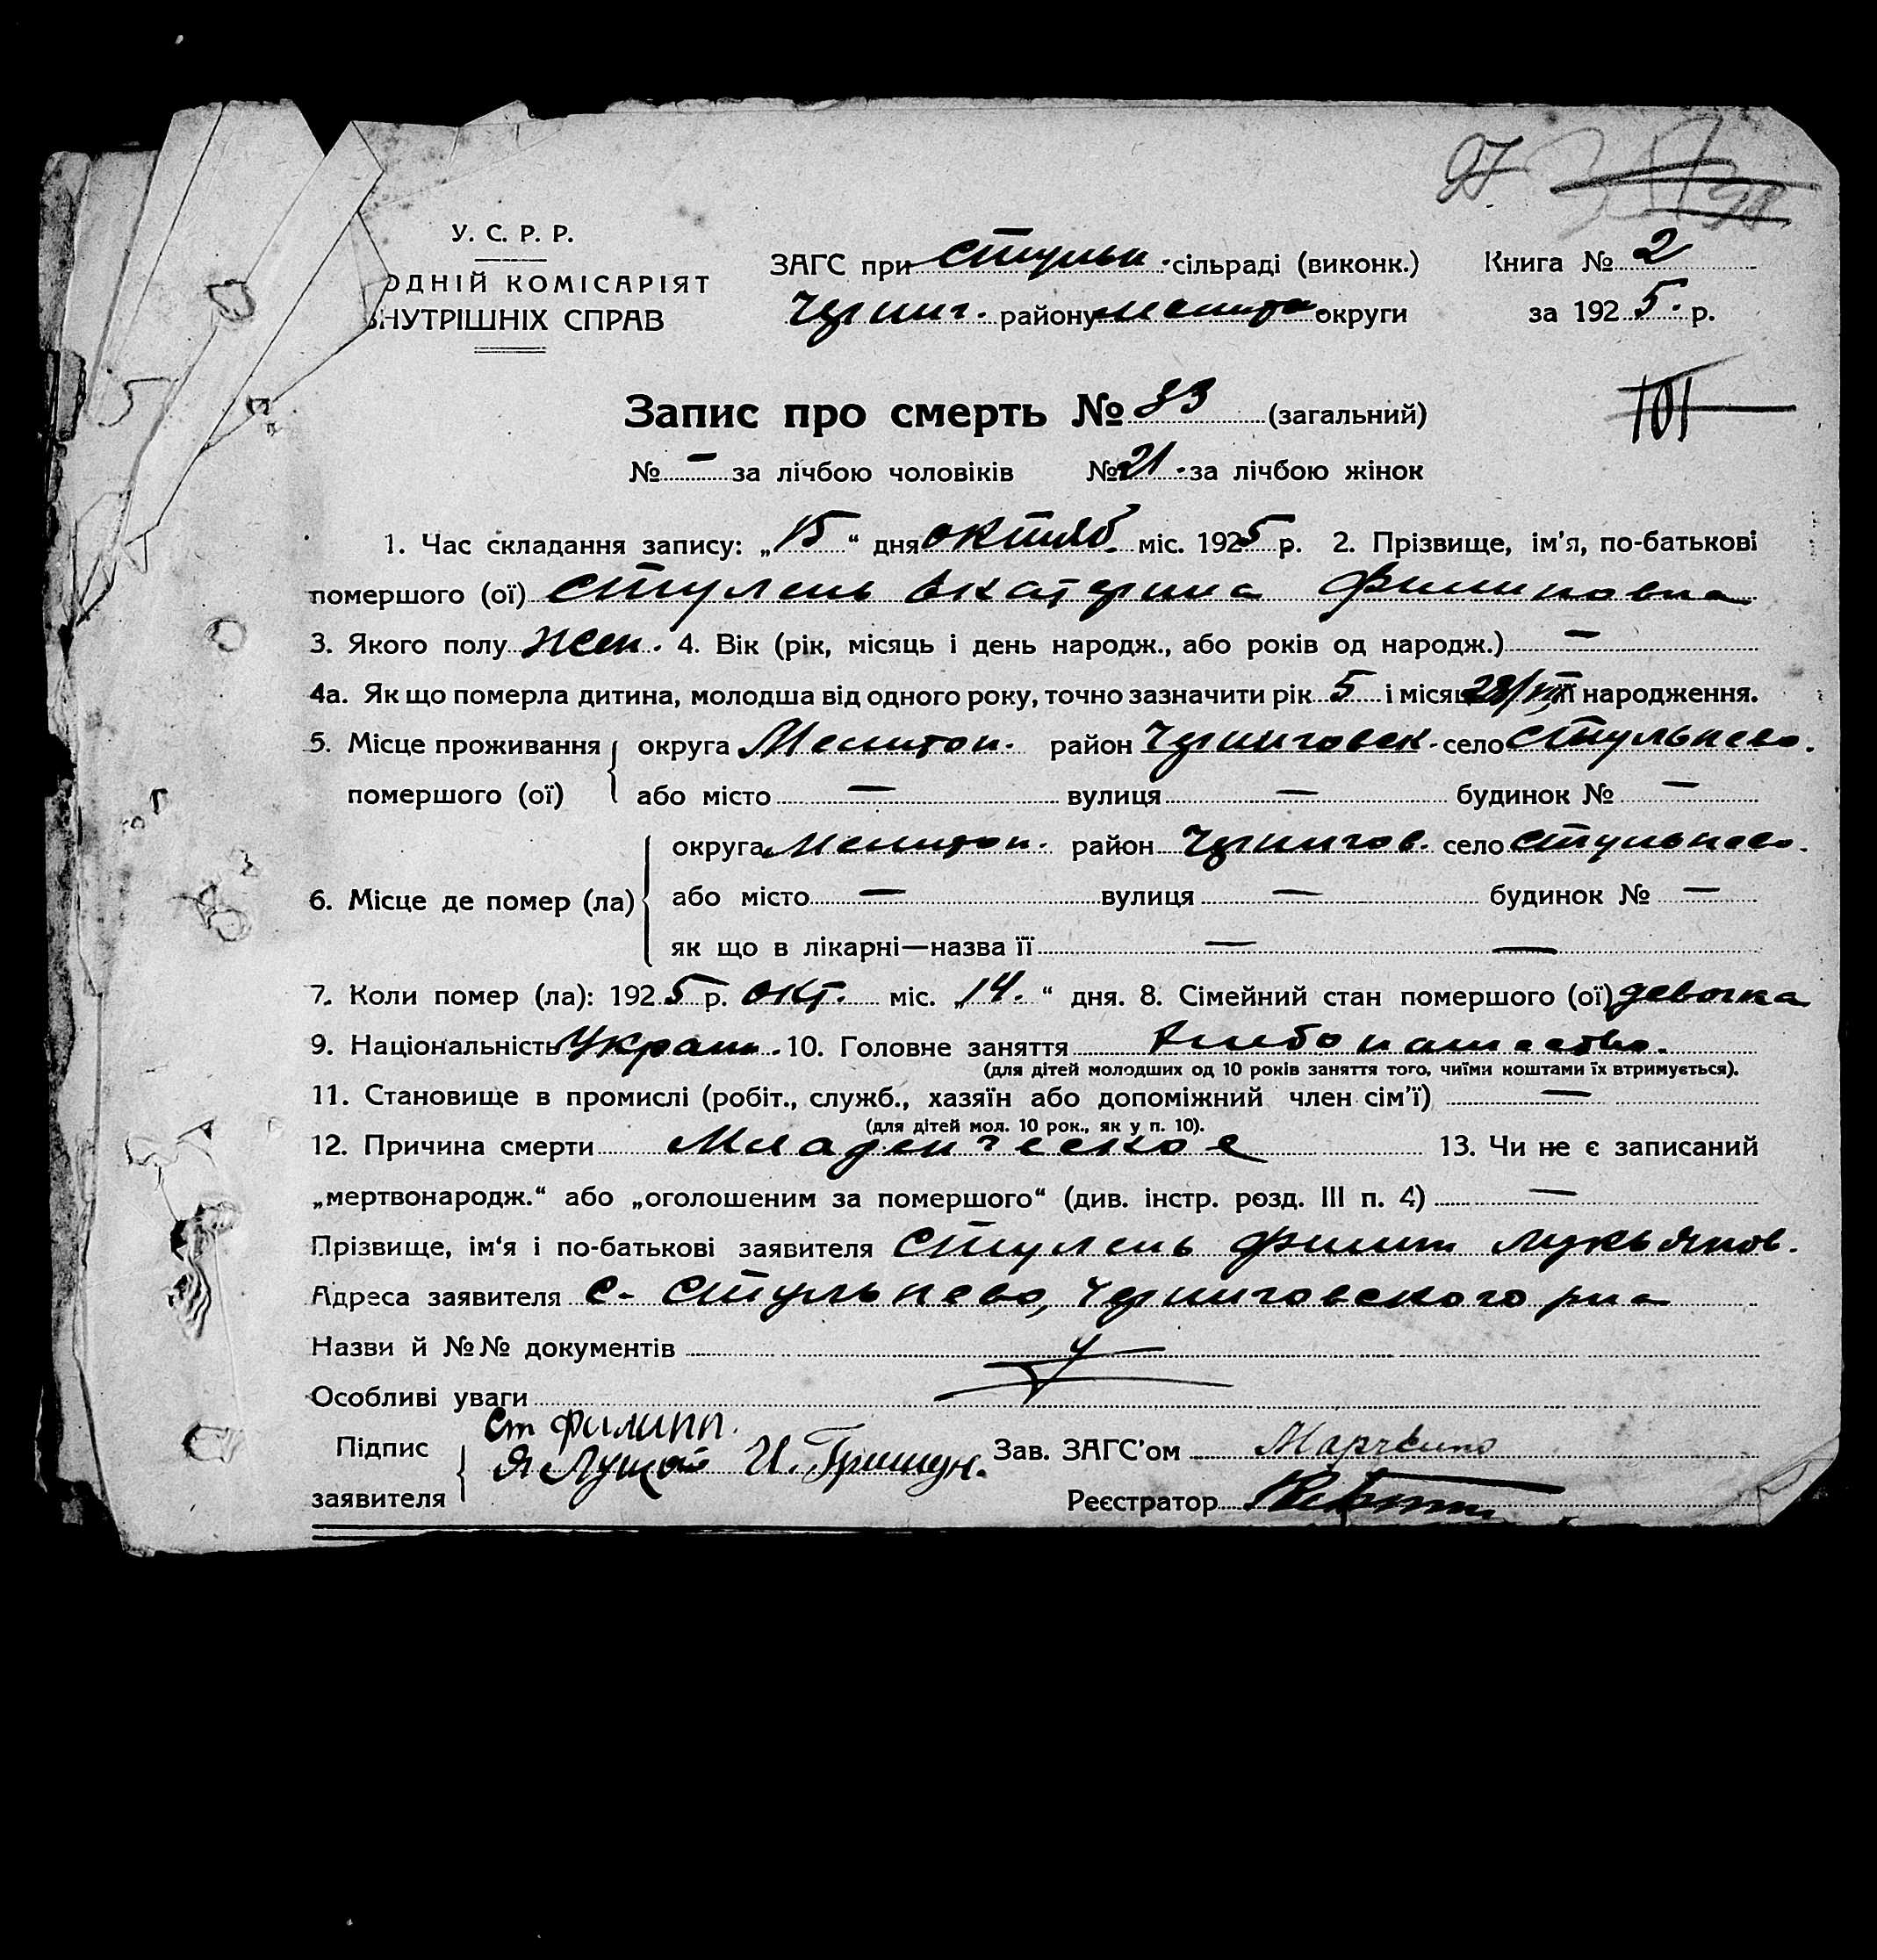 97.
У. С. Р. Р.
ОДНІЙ КОМІСАРІЯТ
ВНУТРІШНІХ СПРАВ
ЗАГС при Стульн. сільраді (виконк.) Книга № 2
Черниг. району Мелитоп округи за 1925. р.
Запис про смерть № 33 (загальний)
101
№ — за лічбою чоловіків № 21. за лічбою жінок
1. Час складання запису: „15“ дня октяб. міс. 1925 р. 2. Прізвище, ім'я, по-батькові
помершого (ої) Стулень Екатерина Филиповна
3. Якого полу жен. 4. Вік (рік, місяць і день народж., або років од народж.) —
4а. Як що померла дитина, молодша від одного року, точно зазначити рік 5 і місяць народження.
5. Місце проживання округа Мелитоп. район Черниговск. село Стульнево.
помершого (ої) або місто — вулиця — будинок № —
округа Мелитоп. район Чернигов. село Стульнево.
6. Місце де помер (ла) або місто — вулиця — будинок № —
як що в лікарні—назва її — —
7. Коли помер (ла): 1925 р. окт. міс. „14.“ дня. 8. Сімейний стан помершого (ої) девочка
9. Національність Украин. 10. Головне заняття Хлебопашество.
(для дітей молодших од 10 років заняття того, чиїми коштами їх втримується).
11. Становище в промислі (робіт., служб., хазяїн або допоміжний член сім'ї) —
(для дітей мол. 10 рок., як у п. 10).
12. Причина смерти Младенческое 13. Чи не є записаний
„мертвонародж.“ або „оголошеним за помершого“ (див. інстр. розд. III п. 4) —
Прізвище, ім'я і по-батькові заявителя Стулень Филип Лукьянов.
Адреса заявителя с. Стульнево, Черниговского р-на
Назви й №№ документів
Особливі уваги
Ст Филипп.
Підпис заявителя И. Гришун. Зав. ЗАГС'ом
Реєстратор